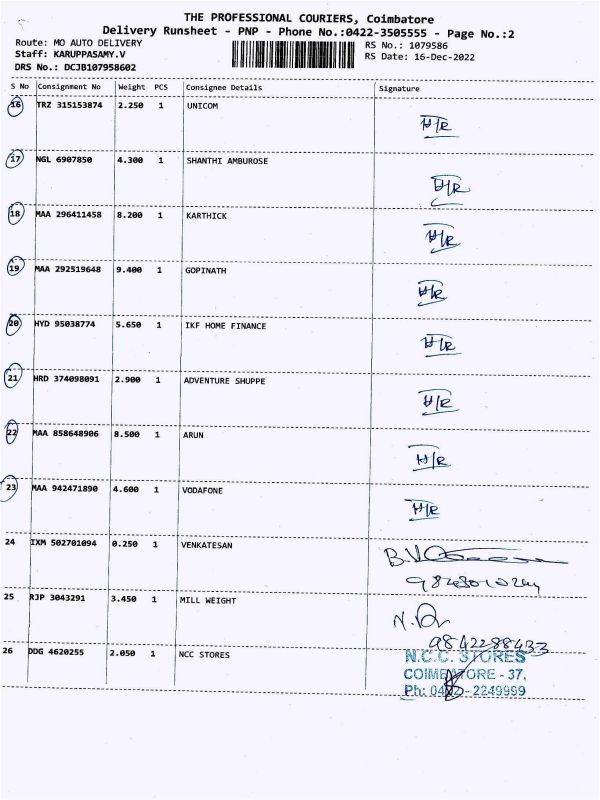 THE PROFESSIONAL COURIERS, Coimbatore
Delivery Runsheet - PNP - Phone No.:0422-3505555 - Page No.:2
Route: MO AUTO DELIVERY
RS No.: 1079586
Staff: KARUPPASAMY.V
RS Date: 16-Dec-2022
DRS No.: DCJB107958602
S No Consignment No Weight PCS Consignee Details Signature
16 TRZ 315153874 2.250 1 UNICOM
H/R
17 NGL 6907850 4.300 1 SHANTHI AMBUROSE
H/R
18 MAA 296411458 8.200 1 KARTHICK
H/R
19 MAA 292519648 9.400 1 GOPINATH
H/R
20 HYD 95038774 5.650 1 IKF HOME FINANCE
H/R
21 HRD 374098091 2.900 1 ADVENTURE SHUPPE
H/R
22 MAA 858648906 8.500 1 ARUN
H/R
23 MAA 942471890 4.600 1 VODAFONE
H/R
24 IXM 502701094 0.250 1 VENKATESAN
25 RJP 3043291 3.450 1 MILL WEIGHT
9842288433
26 DDG 4620255 2.050 1 NCC STORES
N.C.C. STORES
COIMBATORE - 37.
Ph: 0422 - 2249999